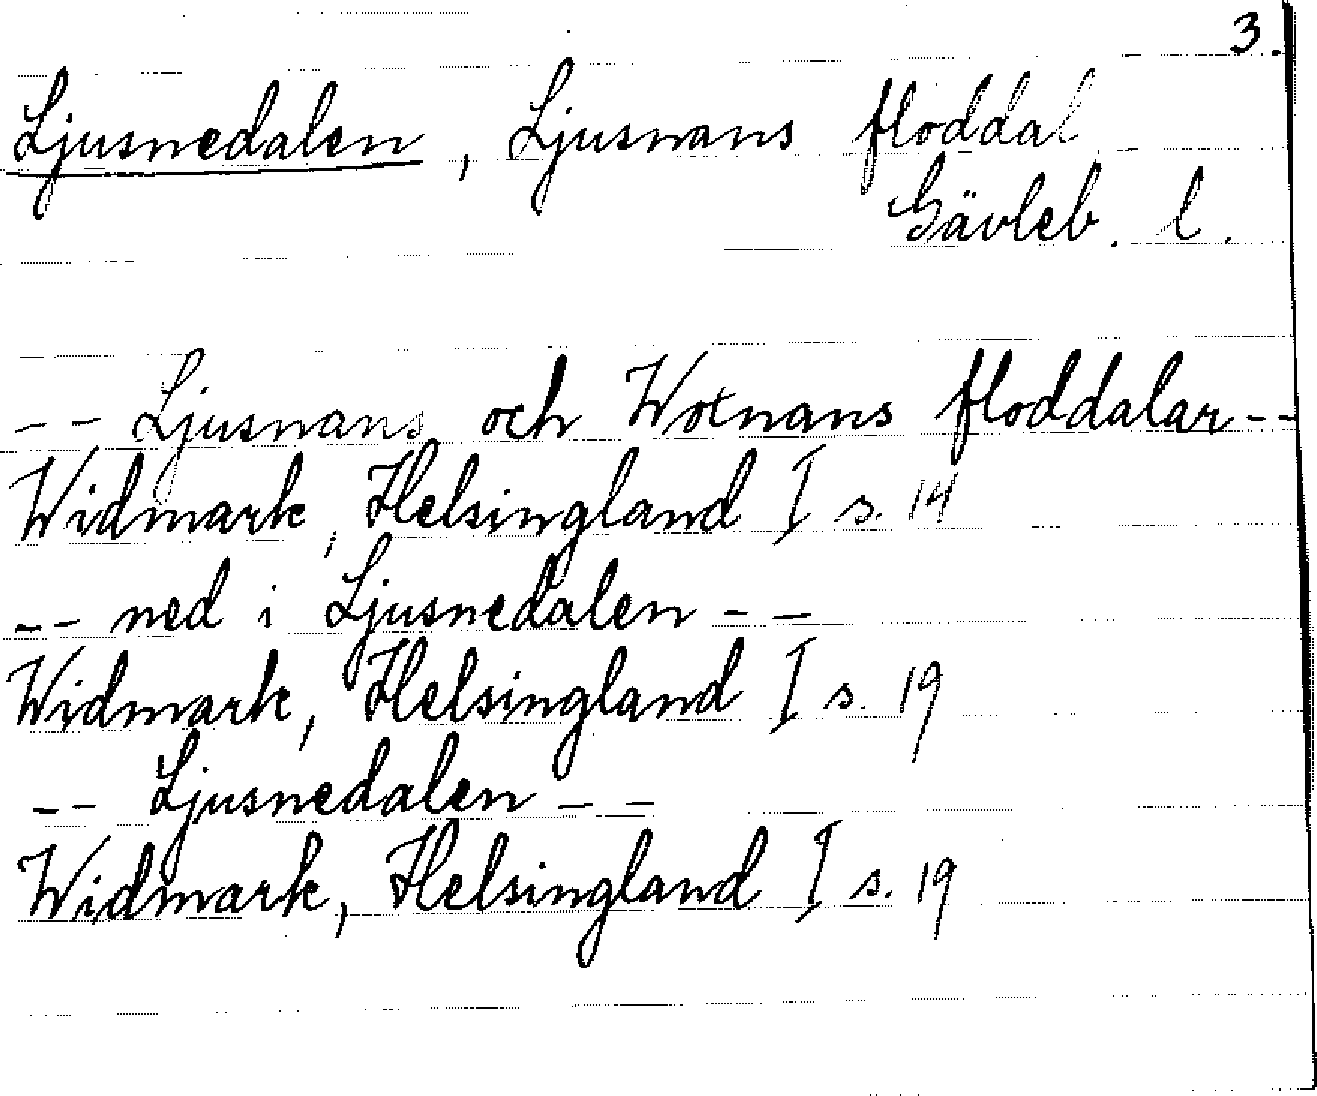 3.
Ljusnedalen, Ljusnans floddal
Gävleb. l.
-- Ljusnans och Woxnans floddalar --
Widmark, Helsingland I s. 14
-- ned i Ljusnedalen --
Widmark, Helsingland I s. 19
-- Ljusnedalen --
Widmark, Helsingland I s. 19